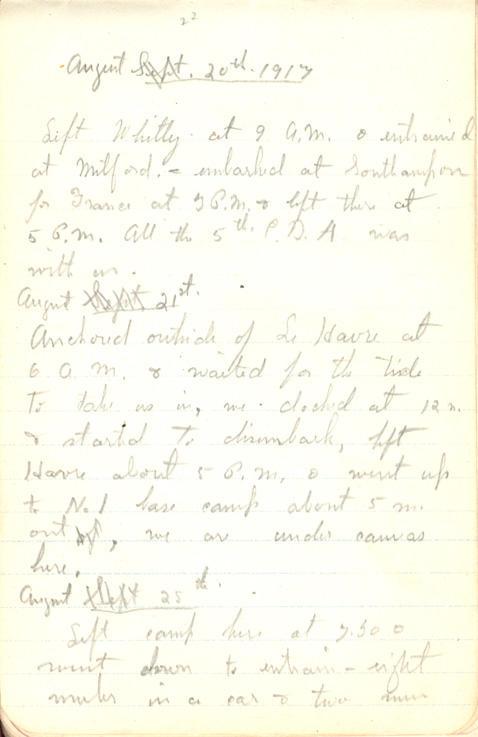 22
August Sept. 20th. 1917
Left Whitly at 9 A.M. & entrained
at Milford. - embarked at Southampton
for France at 3 P.M. & left there at
5 P.M. All the 5th C. D. A was
with us.
August Sept. 21st.
Anchored outside of Le Havre at
6 A.M. & waited for the Tide
to take us in, we docked at 12 n.
& started to disembark, left
Havre about 5 P.M. & went up
to No. 1 base camp about 5 m.
out, we are under canvas
here.
August Sept 25th.
Left camp here at 7.30 &
went down to entrain - eight
mules in a car & two men